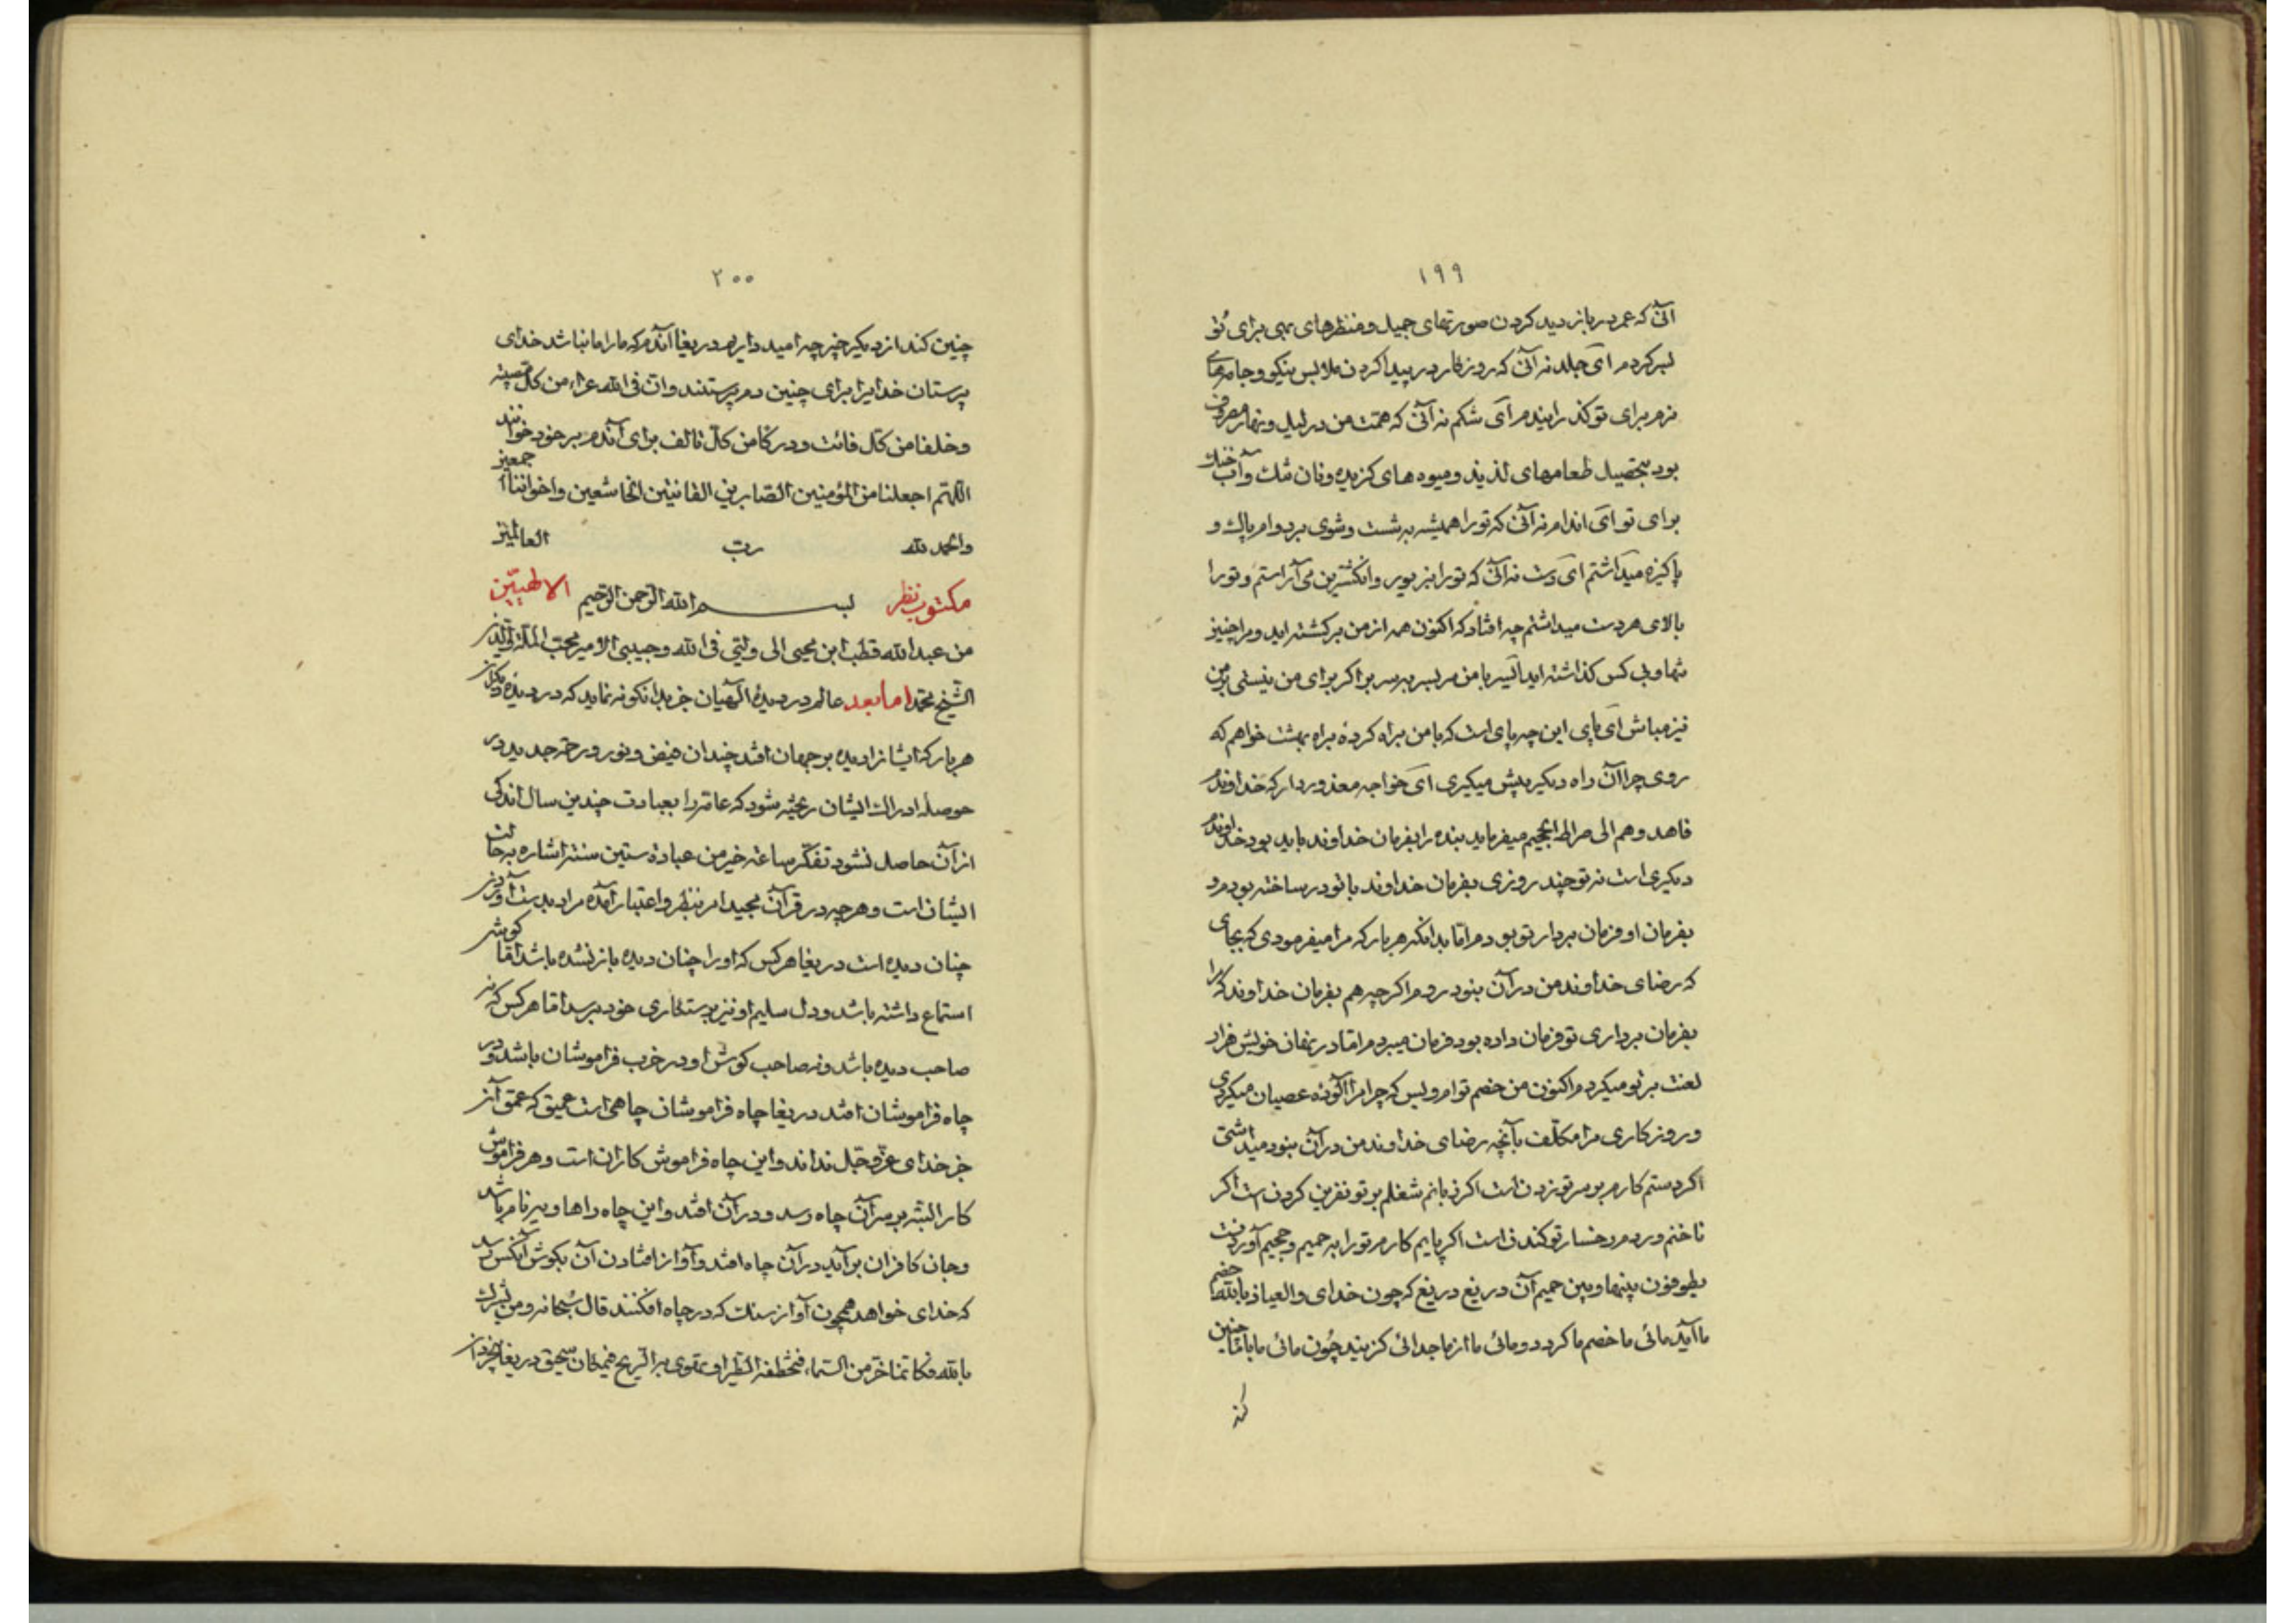 ۱۹۹
آنی که عمر در باز دید کردن صورتهای جمیل و منظرهای بهی برای تو
بسر کردم ای جلد نه آنی که روزکار در پیدا کردن ملابس نیکو و جامهای
نرم برای تو کذرانیدم ای شکم نه آنی که همّت من در لیل و نهار مصروف
بود بتحصیل طعامهای لذیذ و میوه های کزیده و نان تنک و آب خنک
برای تو ای اندام نه آنی که تو را همیشه به شست و شوی بر دوام پاک و
پاکیزه میداشتم ای دست نه آنی که تو را بزیور و انکشترین می آراستم و تو را
بالای هر دست میداشتم چه افتاد که اکنون همه از من برکشته اید و مرا چنین
تنها و بی کس کذاشته اید آلیر با من سر بسر برا اکر برای من نیستی بر من
نیز مباش ای پای این چه پای است که با من براه کردهٔ براه بهشت خواهم که
روی چرا آن راه دیکر پیش میکیری ای خواجه معذور دار که خداوندم
فاهدوهم الی صراط الجحیم میفرماید بنده را بفرمان خداوند باید بود خداوندم
دیکری است نه تو چند روزی بفرمان خداوند با تو در ساخته بودم و
بفرمان او فرمان بردار تو بودم امّا بدانکه هر بار که مرا میفرمودی که بجای
که رضای خداوند من در آن نبود روم اکرچه هم بفرمان خداوند که مرا
بفرمان برداری تو فرمان داده بود فرمان میبردم امّا در نهان خویش هزار
لعنت بر تو میکردم اکنون من خصم توام و بس که چرا مرا آلودهٔ عصیان میکردی
و روزکاری مرا مکلّف بآنچه رضای خداوند من در آن نبود میداشتی
اکر دستم کارم بر سر تو زدن است اکر زبانم شغلم بر تو نفرین کردن است اکر
ناخنم وردم رخسار تو کندن است اکر پایم کارم تو را به حمیم و جحیم آوردنست
یطوفون بینها و بین حمیم آن دریغ دریغ که چون خدای والعیاذ بالله خصم
ما آید مائی ما خصم ما کردد و مائی ما از ما جدائی کزیند چون مائی ما با ما چنین
کند
۲۰۰
چنین کند از دیکر چیز چه امید داریم دریغا آندم که ما را ما نباشد خدای
پرستان خدایرا برای چنین دم پرستند و ان فی الله عزاء من کل مصیبة
و خلفا من کلّ فائت و درکا من کلّ تالف برای آندم بر خود خوانند
اللّهم اجعلنا من المؤمنین الصّابرین القانتین الخاشعین و اخواننا اجمعین
والحمد لله رب العالمین
مکتوب نظر بسم الله الرّحمن الرّحیم الاطیبین
من عبد الله قطب ابن محیی الی ولیّی فی الله و حبیبی الامیر محب الملّة والدّین
الشیخ محمّد اما بعد عالم در دیدهٔ الهیان جز بدانکونه نماید که در دیدهٔ دیکران
هر بار که ایشانرا دیده بر جهان افتد چندان فیض و نور و رحمة جدید در
حوصلهٔ ادراک ایشان ریخته شود که عامّه را بعبادت چندین سال اندکی
از آن حاصل نشود تفکّر ساعة خیر من عبادة ستین سنة اشاره بحالت
ایشان است و هرچه در قرآن مجید امر بنظر و اعتبار آمده مراد بدست آوردن
چنان دیده است دریغا هر کس که او را چنان دیده باز نشده باشد امّا کوش
استماع داشته باشد و دل سلیم او نیز برستکاری خود برسد امّا هر کس که نه
صاحب دیده باشد و نه صاحب کوش او در خرب فراموشان باشد و در
چاه فراموشان افتد دریغا چاه فراموشان چاهی است عمیق که عمق آن
جز خدای عزّ و جلّ نداند و این چاه فراموش کاران است و هر فراموش
کار البته بر سر آن چاه رسد و در آن افتد و این چاه را هاویه نام باشد
و جان کافران بر آید در آن چاه افتد و آواز افتادن آن بکوش آنکس رسد
که خدای خواهد همچون آواز سنک که در چاه افکنند قال سبحانه و من یشرک
بالله فکانّما خرّ من السّماء فتخطفه الطیر او تهوی به الرّیح فی مکان سحیق دریغا